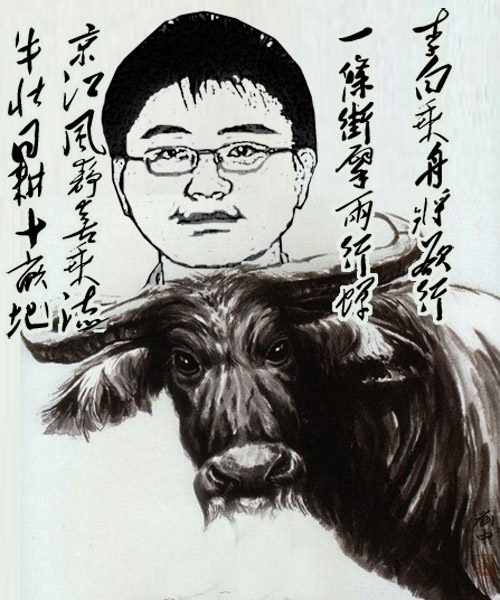 李白乘舟將欲行
一條街擘兩行蟬
京江風靜喜乘流
牛壯日耕十畝地